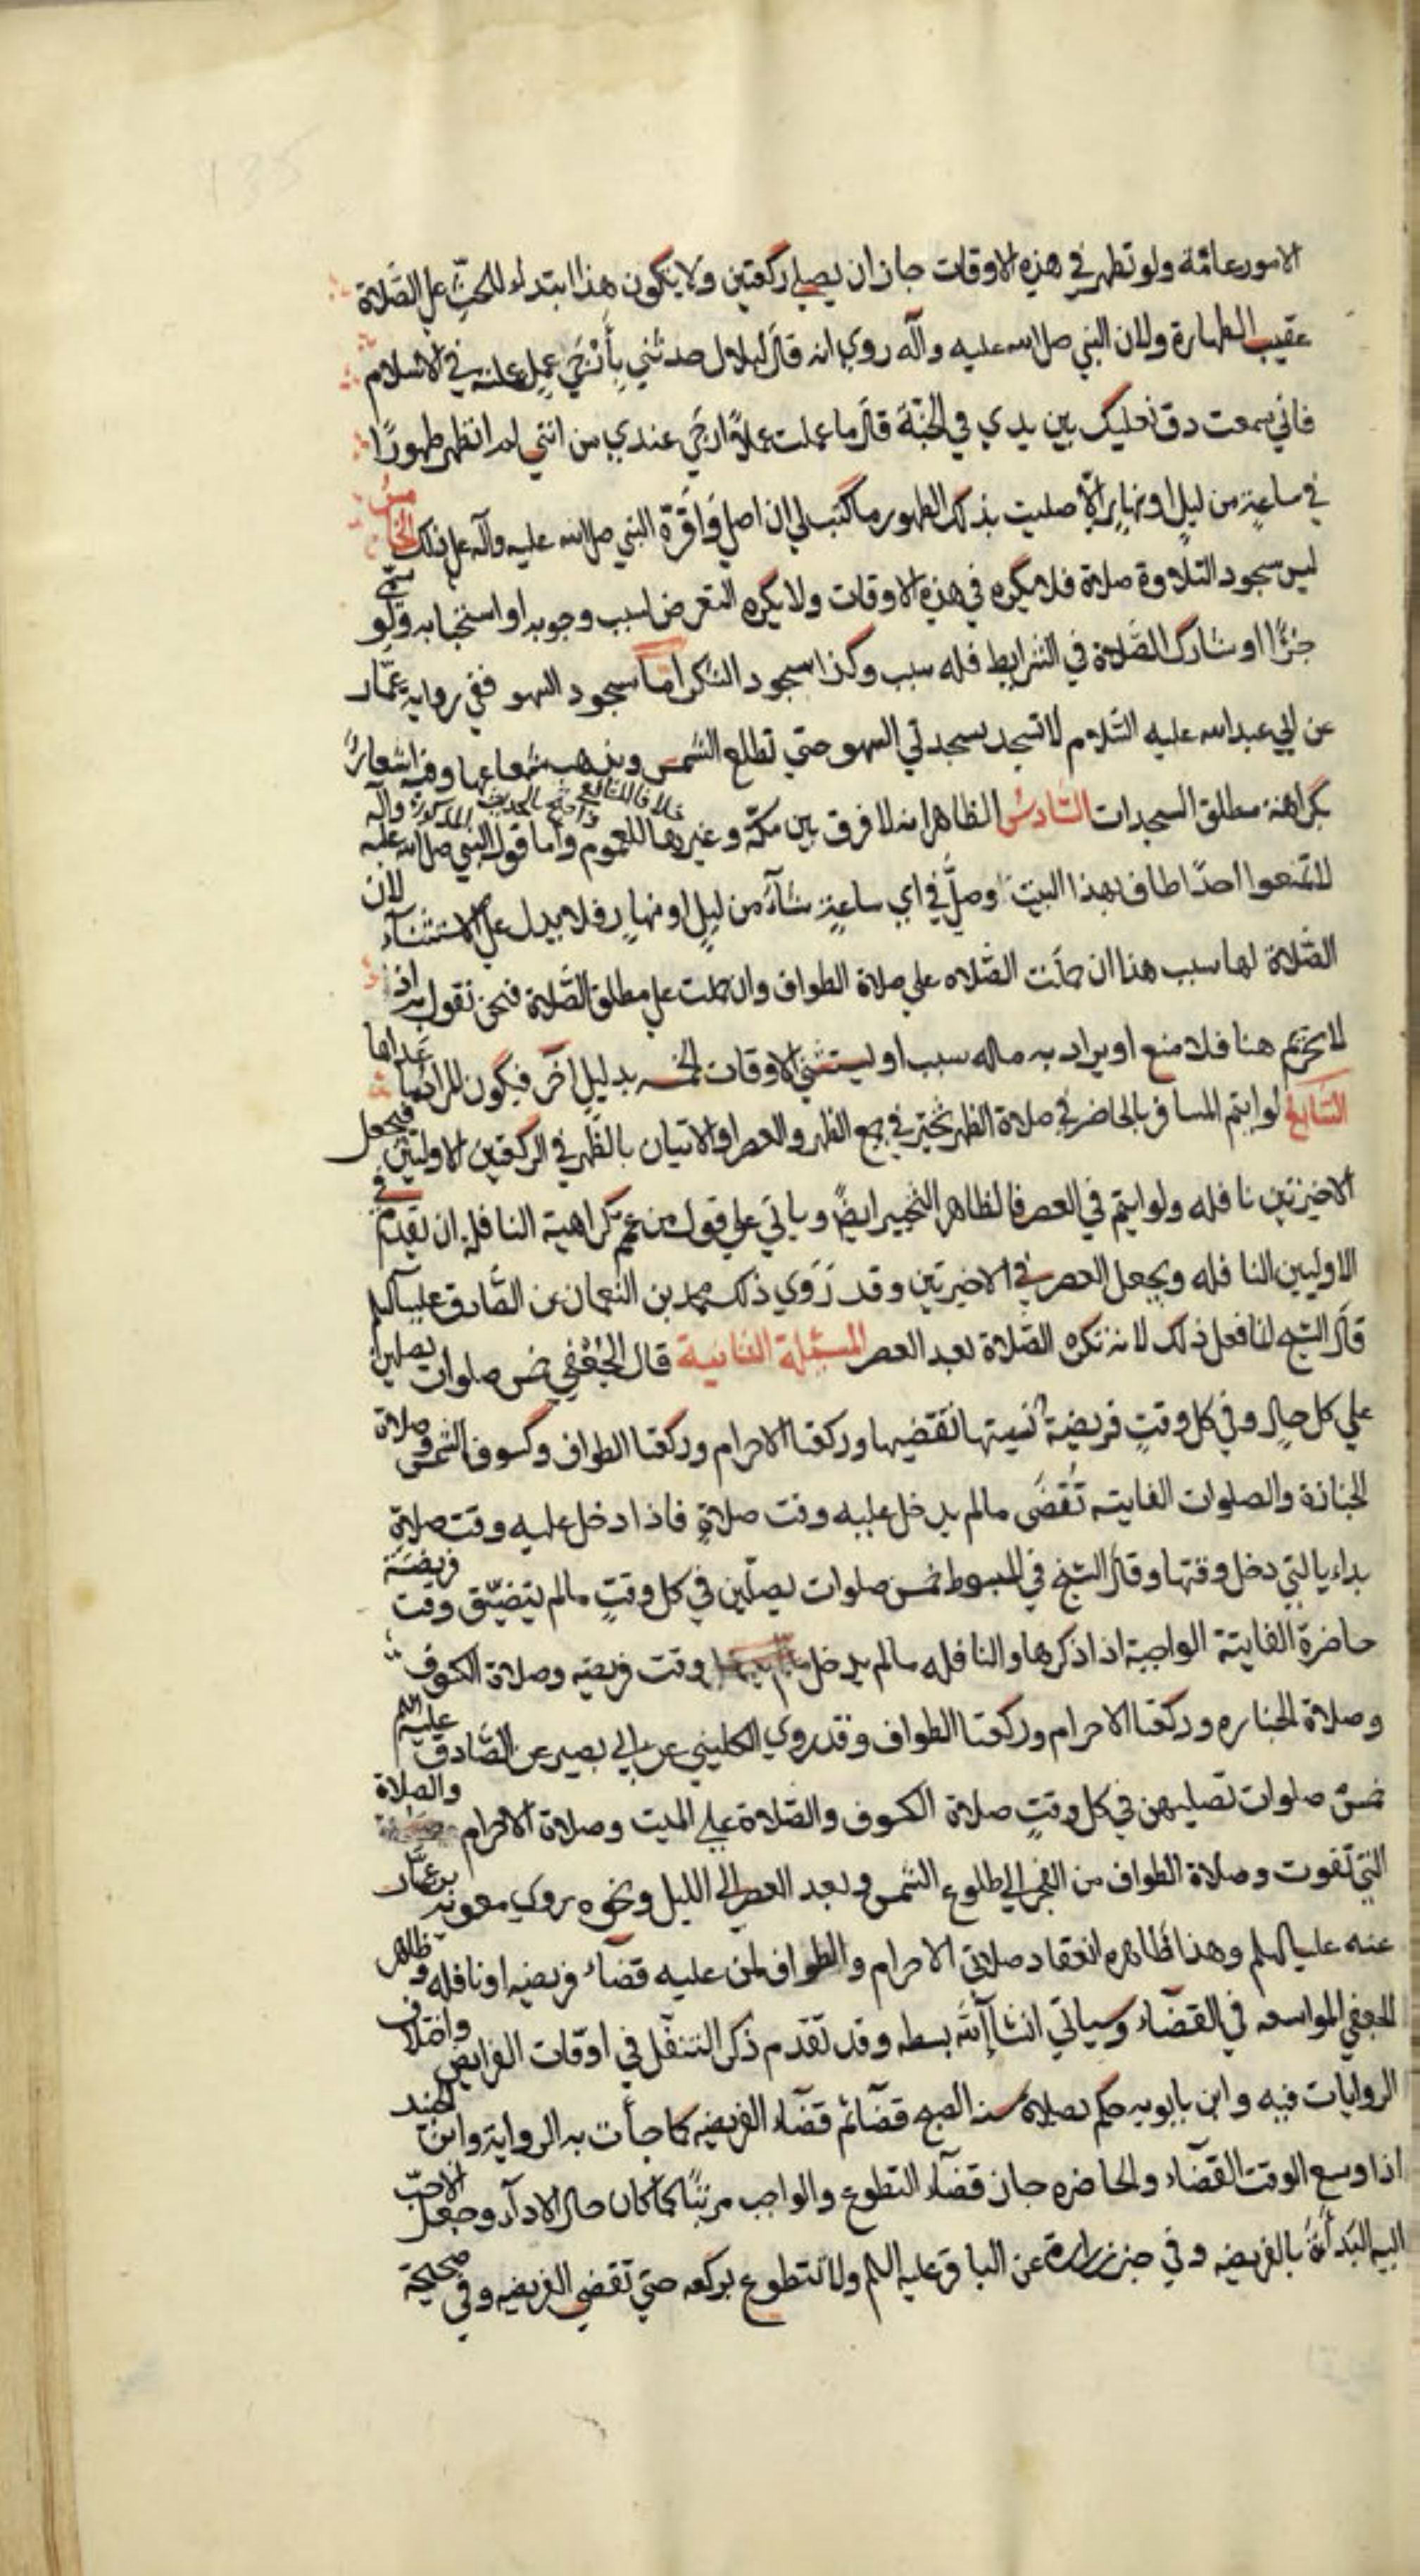 الامور عامة ولو تطهر في هذه الاوقات جاز ان يصلي ركعتين ولا يكون هذا ابتداء للحث علي الصلاة
عقيب الطهارة ولان النبي صلي الله عليه وآله روي انه قال لبلال حدثني بأرجي عمل عملته في الاسلام
فاني سمعت دق نعليك بين يدي في الجنة قال ما عملت عملا ارجي عندي من انني لم اتطهر طهورًا
في ساعةٍ من ليل او نهارٍ الا صليت بذلك الطهور ما كتب لي ان اصلي واقره النبي صلي الله عليه وآله علي ذلك الخامس
ليس سجود التلاوة صلاة فلا يكره في هذه الاوقات ولا يكره التعرض لسبب وجوبه او استحبابه ولو سمي
جزءًا او شارك الصلاة في الشرايط فله سبب وكذا سجود الشكر اما سجود السهو ففي رواية عمار
عن ابي عبد الله عليه السلام لا تسجد سجدتي السهو حتي تطلع الشمس ويذهب شعاعها وفيه اشعارٌ
بكراهية مطلق السجدات السادس الظاهر انه لا فرق بين مكة وغيرها للعموم واما قول النبي صلي الله عليه وآله
خلافا للشافعي واحتج بالحديث المذكور
لا تمنعوا احدًا طاف بهذا البيت وصلي في اي ساعةٍ شآء من ليلٍ او نهارٍ فلا يدل علي الاستثناء لان
الصلاة لها سبب هذا ان حملت الصلاه علي صلاة الطواف وان حملت علي مطلق الصلاة فنحن نقول به اذ
لا تحريم هنا فلا منع او يراد به ماله سبب او يستثني الاوقات الخمسه بدليلٍ آخر فيكون المراد ما عداها
السابع لو ايتم المسافر بالحاضر في صلاة الظهر تخير في جمع الظهر والعصر او الاتيان بالظهر في الركعتين الاوليتين فيجعل
الاخيرتين نافله ولو ايتم في العصر فالظاهر التخيير ايضًا ويأتي علي قول من عمم كراهية النافله ان يقدم في
الاوليين النافله ويجعل العصر في الاخيرتين وقد روي ذلك محمد بن النعمان عن الصادق عليه السلم
قال الشيخ انما فعل ذلك لانه تكره الصلاة بعد العصر المسئلة الثانية قال الجعفي خمس صلوات يصلين
علي كل حالٍ وفي كل وقتٍ فريضة نسيتها تقضيها وركعتا الاحرام وركعتا الطواف وكسوف الشمس وصلاة
الجنازة والصلوات الفايته تُقضَي مالم يدخل عليه وقت صلاةٍ فاذا دخل عليه وقت صلاةٍ
بداء بالتي دخل وقتها وقال الشيخ في المبسوط خمس صلوات يصلّين في كل وقتٍ مالم يتضيّق وقت فريضة
حاضرة الفايتة الواجبة اذا ذكرها والنافله مالم يدخل وقت فريضه وصلاة الكسوف
وصلاة الجنازه وركعتا الاحرام وركعتا الطواف وقد روي الكليني عن ابي بصير عن الصادق عليه السلم
خمس صلوات تصليهن في كل وقتٍ صلاة الكسوف والصلاة علي الميت وصلاة الاحرام والصلاة
التي تفوت وصلاة الطواف من الفجر الي طلوع الشمس وبعد العصر الي الليل ونحوه روي معوية بن عمار
عنه عليه السلم وهذا ظاهره انعقاد صلاتي الاحرام والطواف لمن عليه قضاء فريضه او نافله وظاهر
الجعفي المواسعه في القضاء وسياتي انشاء الله بسطه وقد تقدم ذكر التنفل في اوقات الفرايض واختلاف
الروايات فيه وابن بابويه حكم بصلاة سنه الصبح قضآء ثم قضآء الفريضه كما جأت به الرواية وابن الجنيد
اذا وسع الوقت القضآء والحاضره جاز قضآء التطوع والواجب مرتبًا كما كان حال الادآء وجعل الاحب
اليه البدأة بالفريضه وفي خبر زرارة عن الباقر عليه السلم ولا تتطوع بركعه حتي تقضي الفريضه وفي صحيحة